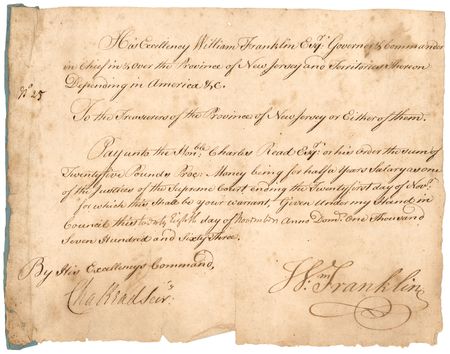 His Excellency William Franklin Esqr. Governor & Commander
in Chief in & over the Province of New Jersey and Territories Thereon
Depending in America &C.
No 25
To the Treasurers of the Province of New Jersey or Either of them.
Pay unto the Honble. Charles Read Esqr. or his Order the sum of
Twenty five Pounds Proc. Money being for half a Years Salary as one
of the Justices of the Supreme Court ending the Twenty first day of Novr.
for which this Shall be your Warrant, Given under my Hand in
Council this Twenty Eighth day of November Anno Domi. One Thousand
Seven Hundred and Sixty Three.
By His Excellencys Command,
Cha Read Secr.
Wm Franklin